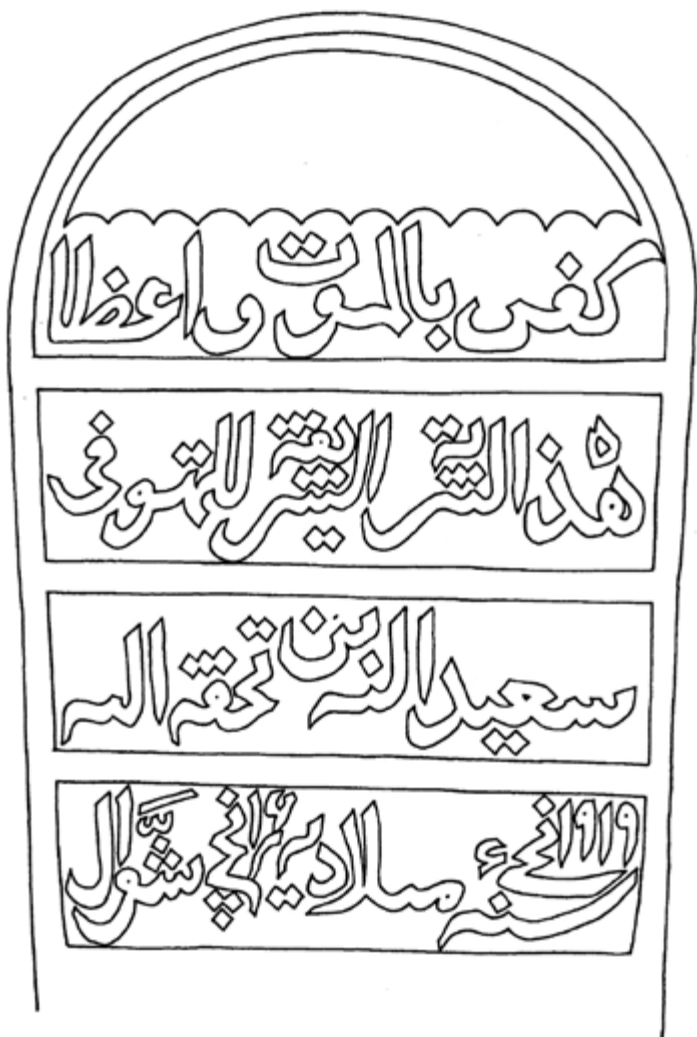 كفى بالموت واعظا
هذا التربة الشريفة للمتوفى
سعيد الله بن تحفة الله
سنة ١٩١٩ نچی میلادیە شوال